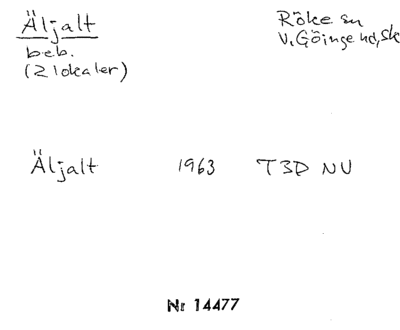 Äljalt
beb.
(2 lokaler)
Röke sn
V. Göinge hd, Sk
Äljalt 1963 T3D NV
Nr 14477